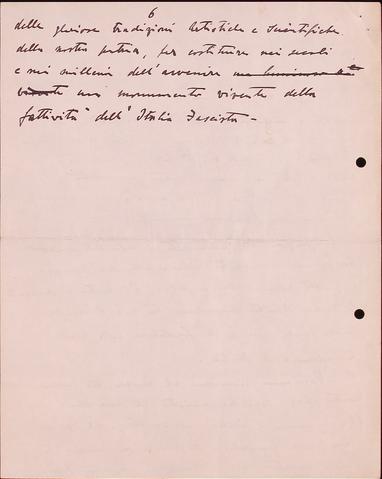 6
delle gloriose tradizioni artistiche e scientifiche
della nostra patria, per costituire nei secoli
e nei millenni dell'avvenire
un monumento vivente della
fattività dell'Italia Fascista -